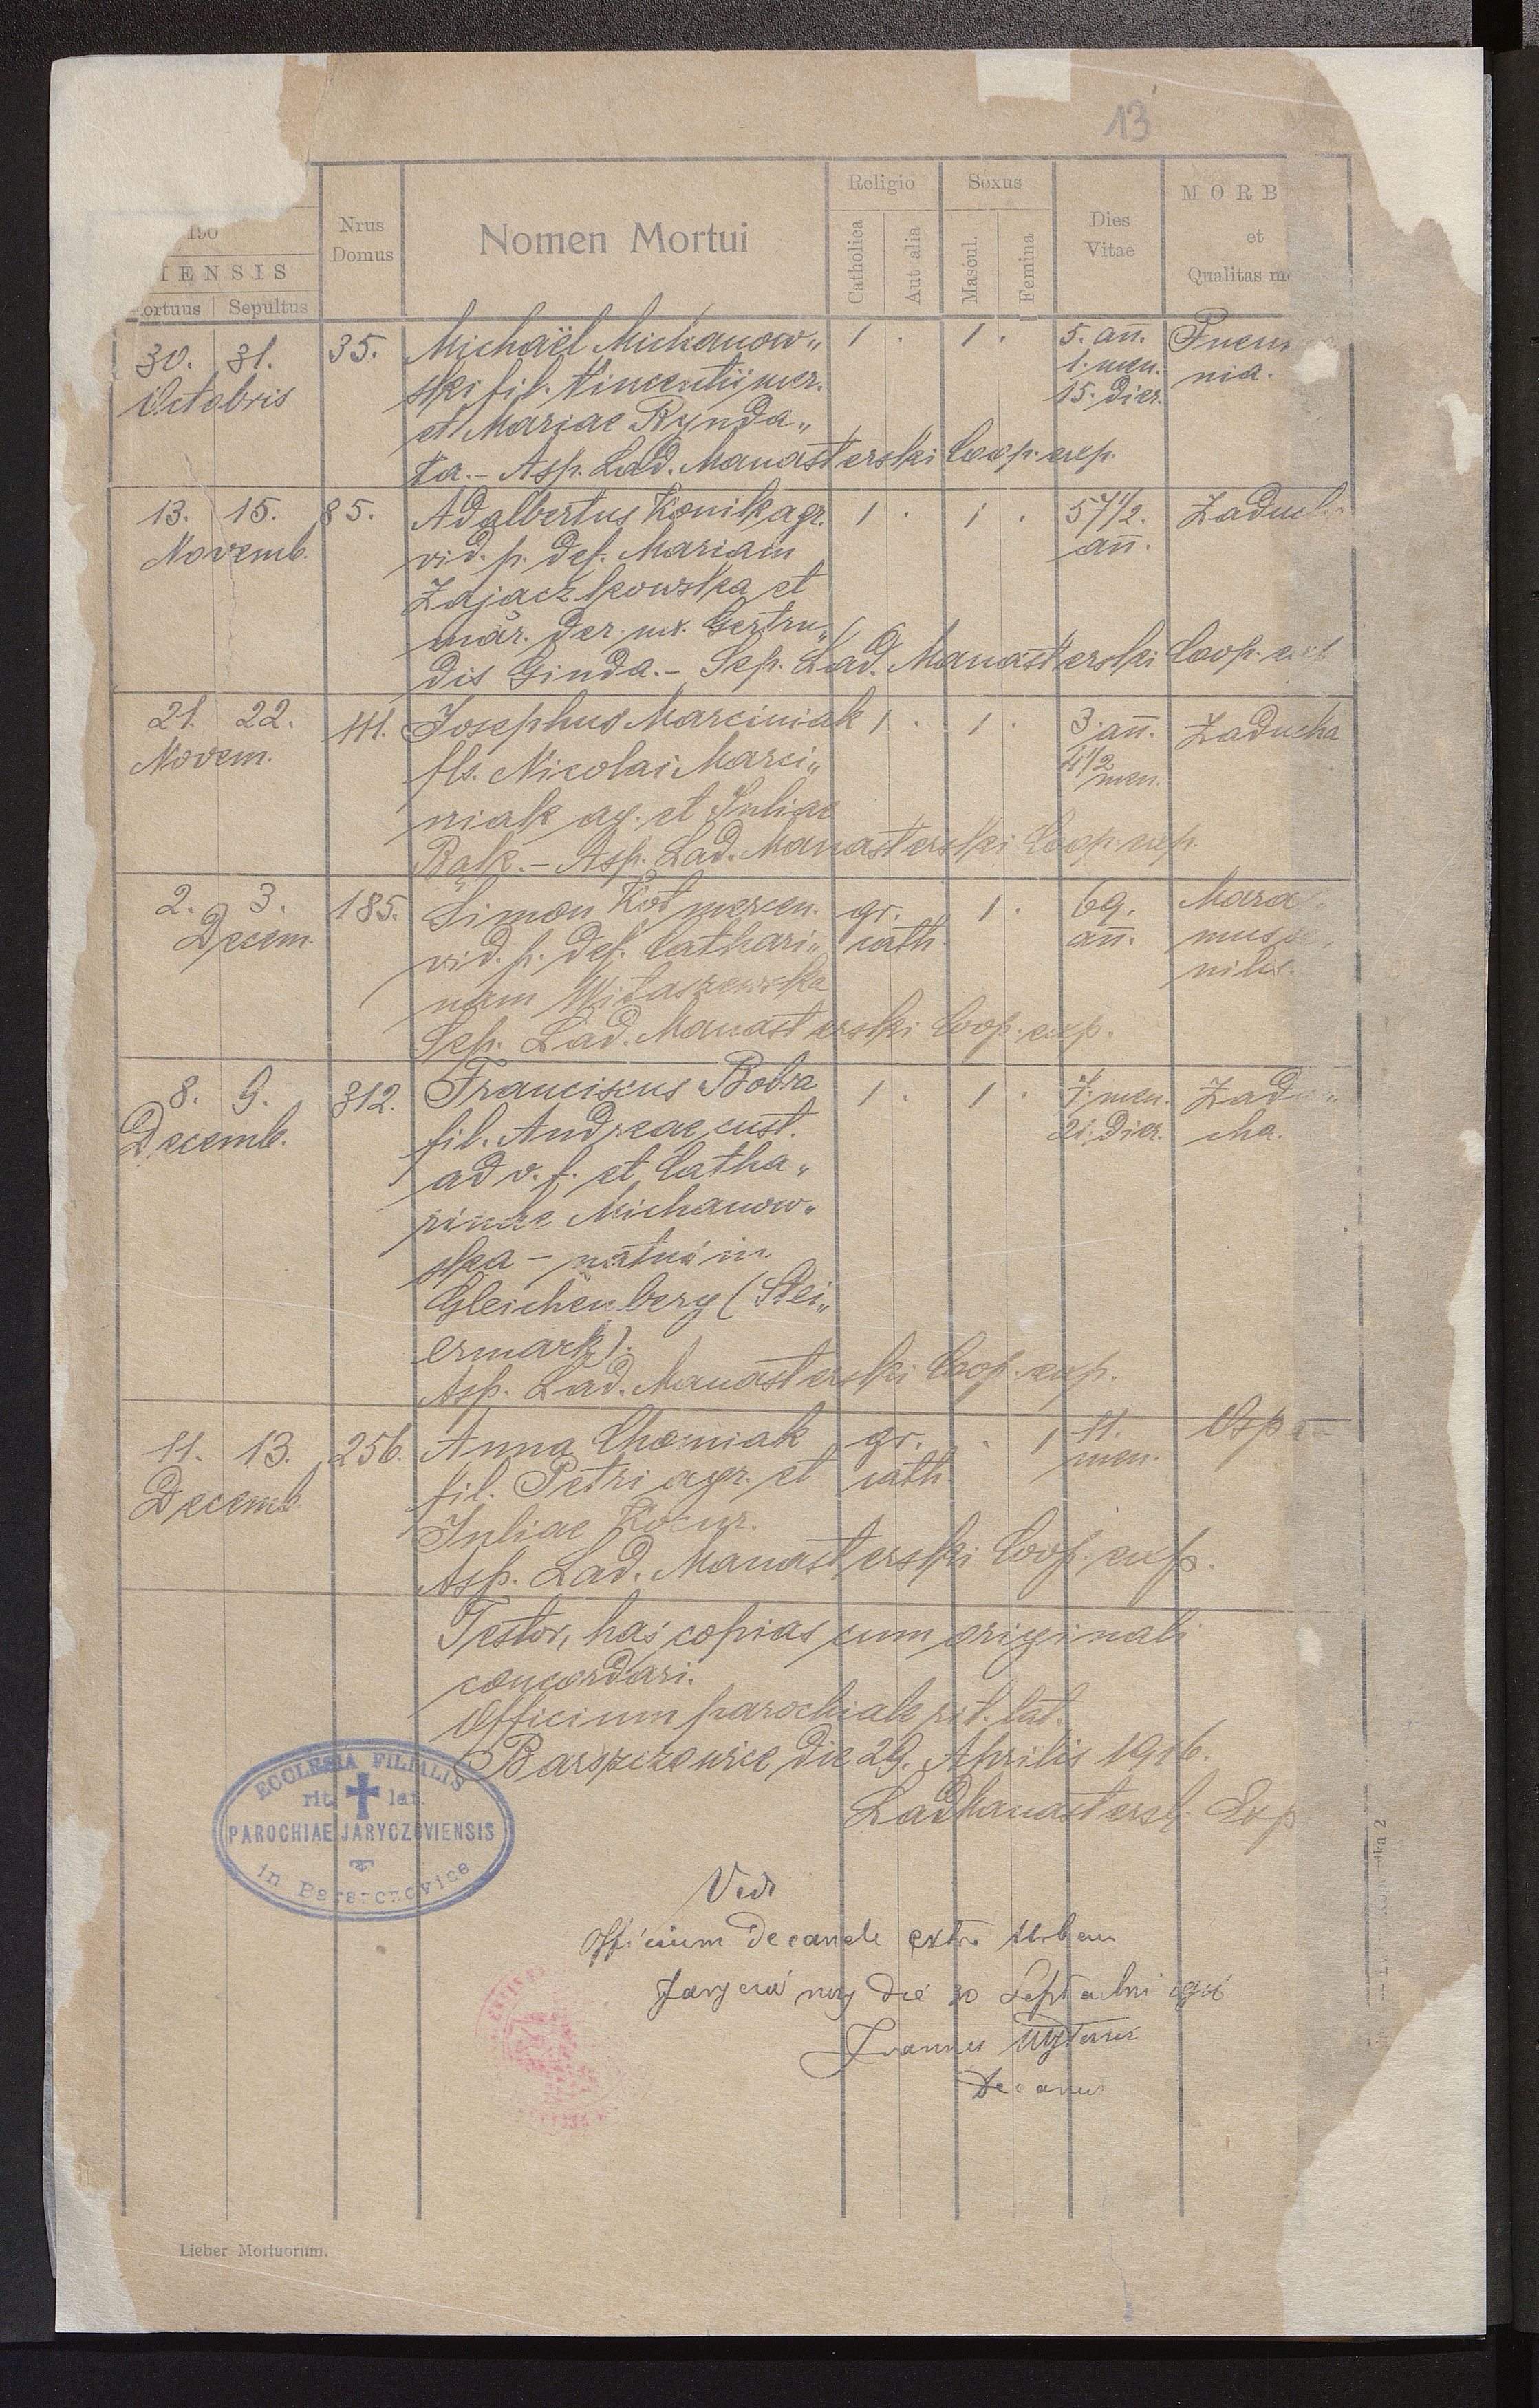 13
190
IENSIS
ortuus Sepultus
Nrus Domus
Nomen Mortui
Religio
Catholica Aut alia
Sexus
Mascul. Femina
Dies Vitae
MORB
et
Qualitas m
30. 31. 35. Michaël Michanow„ 1 . 1 . 5. añ. Pneu
Octobris ski fil. Vincentii mer. 1. men. nia.
et Mariae Rynda„ 15. dier.
ta. – Asp. Lad. Manasterski Coop. exp.
13. 15. 85. Adalbertus Konik agr. 1 . 1 . 57 1/2. Zaduch
Novemb. vid. p. def. Mariam añ.
Zajaczkowska et
mar. der. ux. Gertru„
dis Ginda. – Sep. Lad. Manasterski Coop. exp
21. 22. 111. Josephus Marciniak 1 . 1 . 3 añ. Zaducha
Novem. fls. Nicolai Marci„ 4 1/2 men.
niak ag. et Juliae
Bąk. – Asp. Lad. Manasterski Coop. exp.
2. 3. 185. Simon Kot mercen. gr. 1 . 69. Mara
Decem. vid. p. def. Cathari„ cath. añ. mus
nam Witaszewska nilis.
Sep. Lad. Manasterski Coop. exp.
8. 9. 312. Franciscus Bobra 1 . 1 . 7. men. Zadu„
Decemb. fil. Andreae cust. 21. dier. cha.
ad v. f. et Catha„
rinae Michanow„
ska – natus in
Gleichenberg (Stei„
ermark).
Asp. Lad. Manasterski Coop. exp.
11. 13. 256. Anna Chomiak gr. . 1 11. Osp
Decemb. fil. Petri agr. et cath. men.
Juliae Kocur.
Asp. Lad. Manasterski Coop. exp.
Testor, has copias cum originali
concordari.
Officium parochiale rit. lat.
Barszczowice, die 29. Aprilis 1916.
Lad Manasterski Exp
ECCLESIA FILIALIS
rit. lat.
PAROCHIAE JARYCZOVIENSIS
in Barszczovice
Vidi
Officium Decanale extra Urbem
die 30 Septembri 1916
Joannes
Decanus
Lieber Mortuorum.